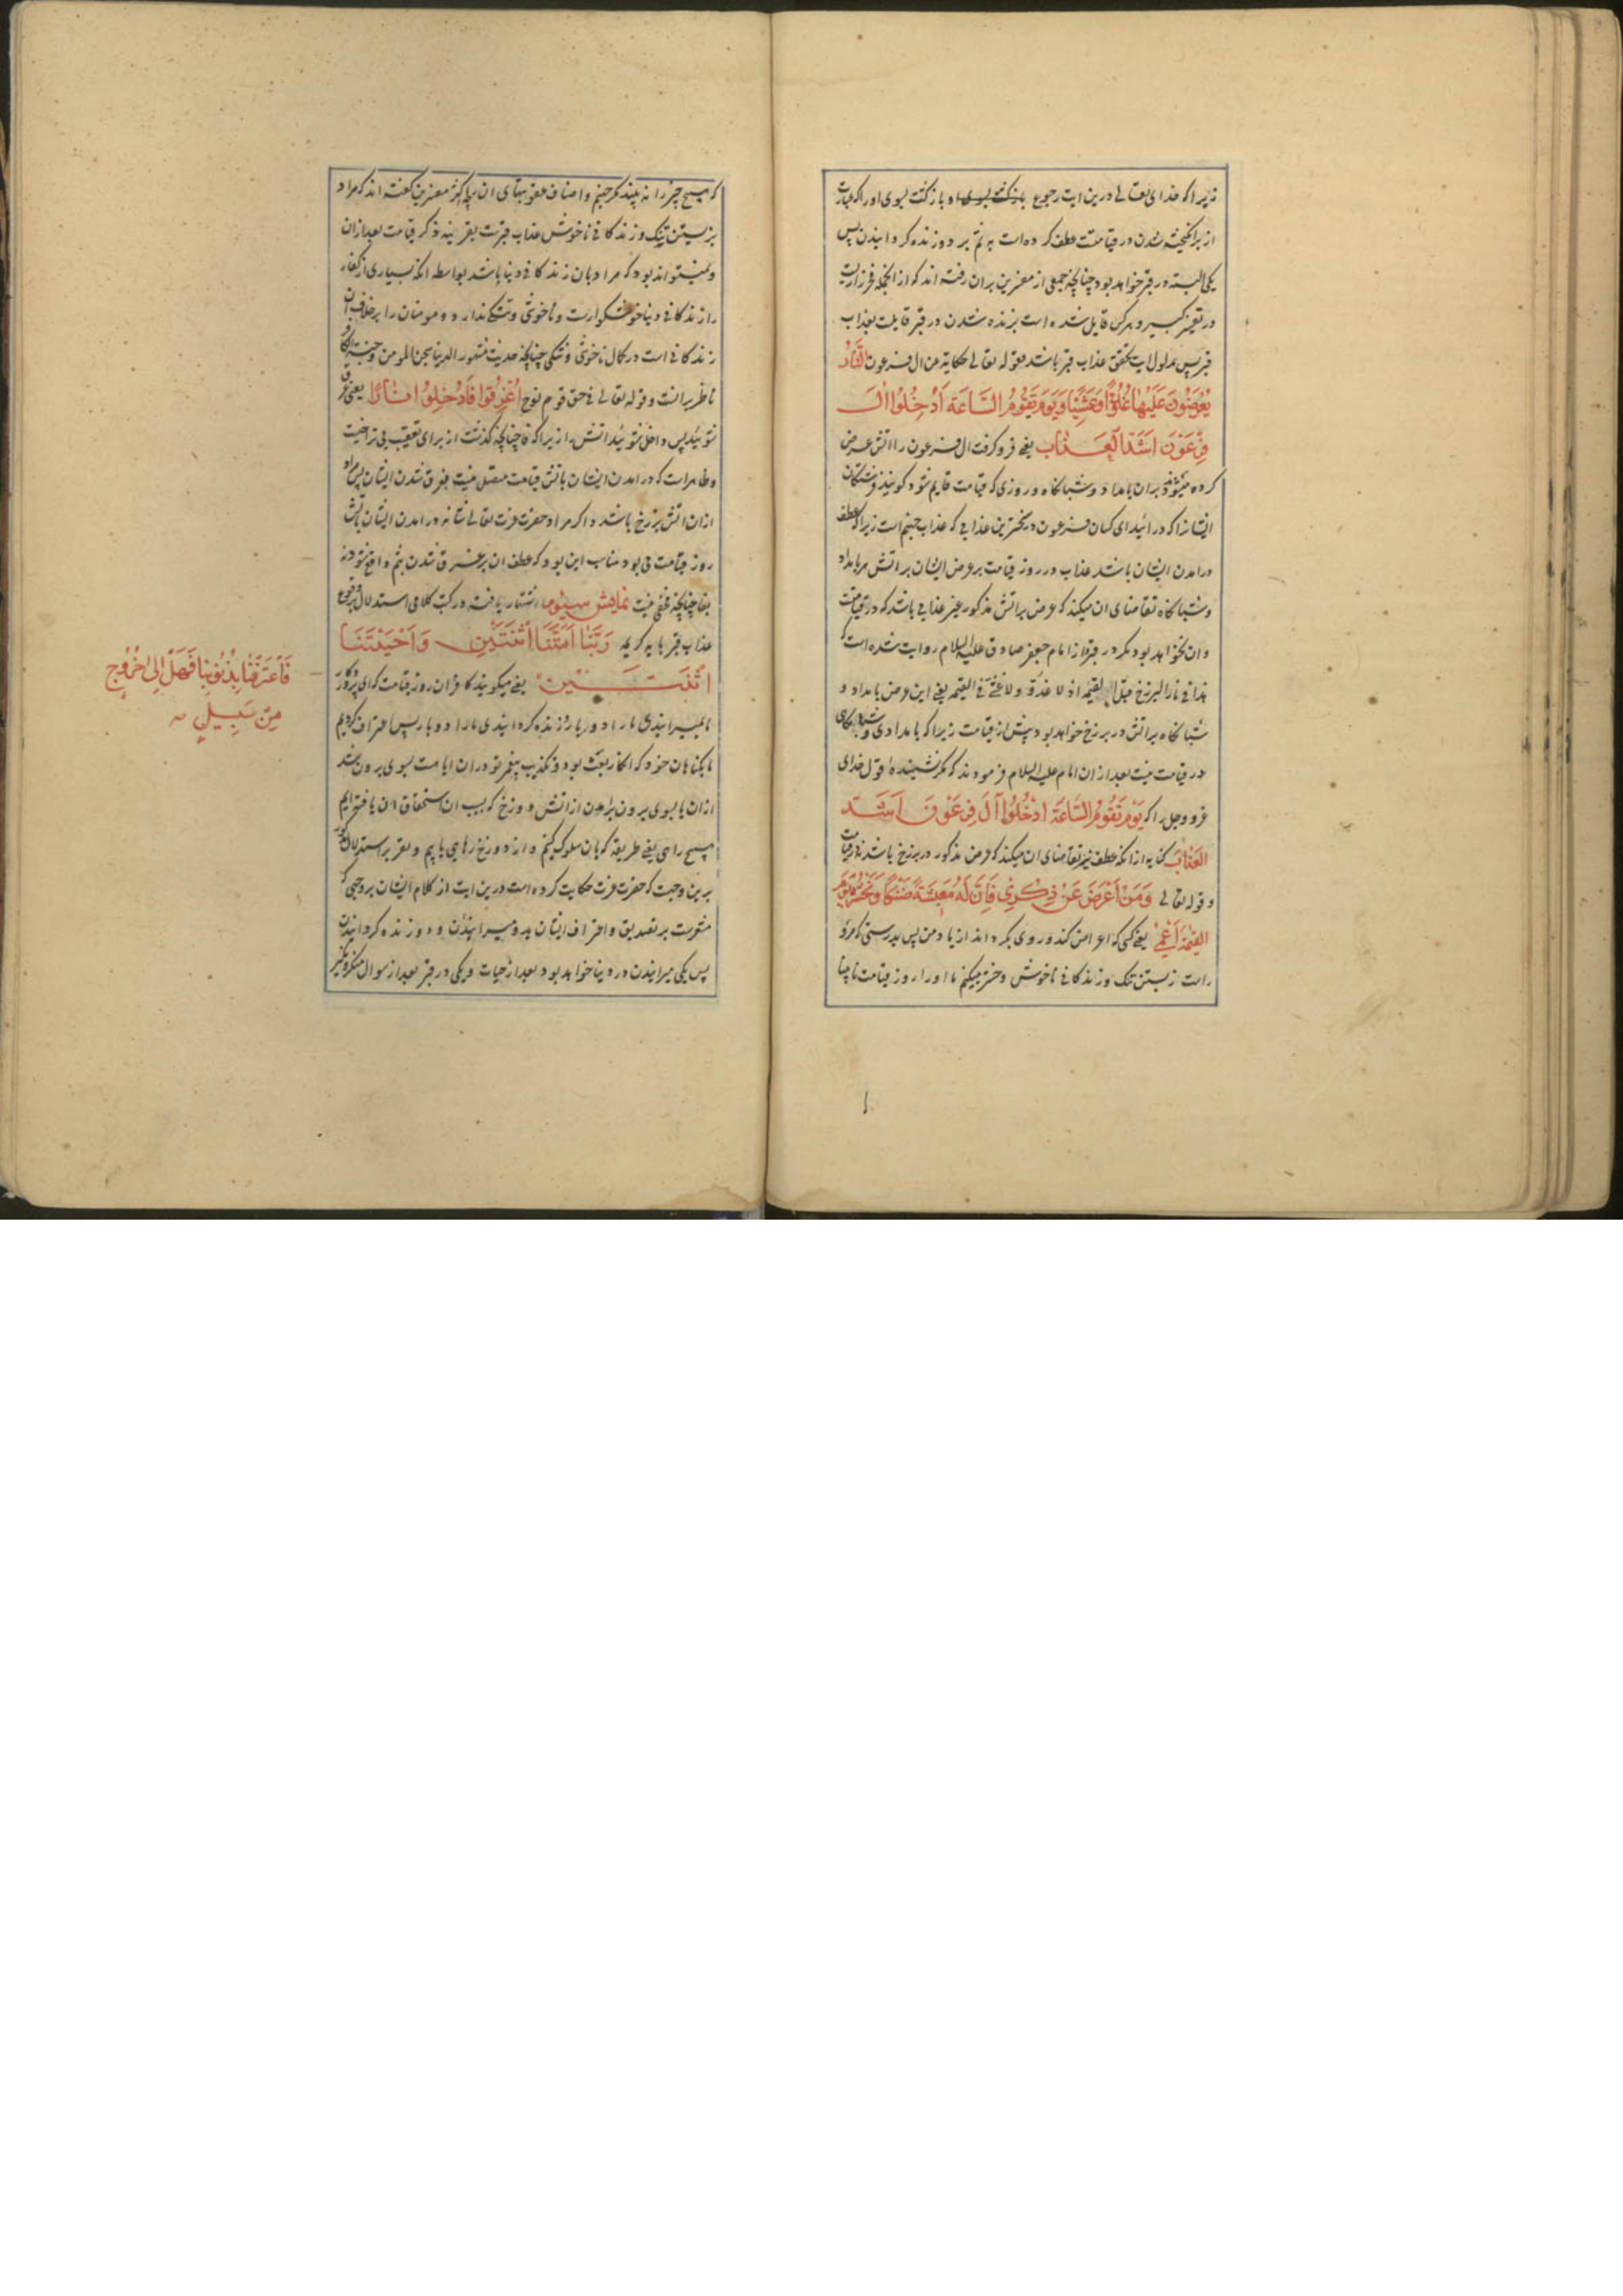 زیرا که خدای تعالی درین ایت رجوع باو باز کشت بسوی او را که عبارت
از برانکیخته شدن در قیامتست عطف کرده است به ثم بر دو زنده کردانیدن پس
یکی البته در قبر خواهد بود چنانچه جمعی از مفسرین بران رفته اند که از انجمله فخر رازیست
در تفسیر کبیر و هر کس قایل شده است بزنده شدن در قبر قایلست بعذاب
قبر پس مدلول ایت تحقق عذاب قبر باشد قوله تعالی حکایة عن ال فرعون اَلنّارُ
یُعْرَضُونَ عَلَیْها غُدُوًّا وَعَشِیًّا وَیَوْمَ تَقُومُ السَّاعَةُ اَدْخِلُوا الَ
فِرْعَوْنَ اَشَدَّ الْعَذاب یعنی فرو کرفت ال فرعون را اتش عرض
کرده میشوند بران بامداد و شبانکاه و روزی که قیامت قایم شود کویند فرشتکان
ایشانرا که درائید ای کسان فرعون در سخترین عذابی که عذاب جهنم است زیرا که عطف
درامدن ایشان باشد عذاب در روز قیامت بر عرض ایشان بر اتش هر بامداد
و شبانکاه تقاضای ان میکند که عرض بر اتش مذکور غیر عذابی باشد که در قیامتست
و ان نخواهد بود مکر در قبر و از امام جعفر صادق علیه السلام روایت شده است که
هذا فی نار البرزخ قبل القیمه اذ لا غدو و لا عشی فی القیمه یعنی این عرض بامداد و
شبانکاه بر اتش در برزخ خواهد بود پیش از قیامت زیرا که بامدادی و شبانکاهی
در قیامت نیست بعد از ان امام علیه السلام فرمودند که مکر نشنیده قول خدای
عز و جل را که یَوْمَ تَقُومُ السَّاعَةُ ادْخُلُوا آلَ فِرْعَوْنَ اَشَدَّ
الْعَذابِ کنایه از انکه عطف نیز تقاضای ان میکند که عرض مذکور در برزخ باشد نه در قیامت
و قوله تعالی وَمَنْ اَعْرَضَ عَنْ ذِکْرِی فَاِنَّ لَهُ مَعِیشَةً ضَنْکًا وَنَحْشُرُهُ یَوْمَ
الْقِیمَةِ اَعْمی یعنی کسی که اعراض کند و روی بکرداند از یاد من پس بدرستی که مر او
راست زیستن تنک و زندکانی ناخوش و حشر میکنیم ما او را روز قیامت نابینا
که هیچ چیز را نه بیند مکر جهنم و اصناف عقوبتهای ان بچه اکثر مفسرین کفته اند که مراد
بزیستن تنک و زندکانی ناخوش عذاب قبرست بقرینه ذکر قیامت بعد از ان
و نمیتواند بود که مراد بان زندکانی دنیا باشد بواسطه انکه بسیاری از کفار
را زندکانی دنیا خوشکوارست و ناخوشی و تنکی ندارد و مومنان را برخلاف ان
زندکانی است در کمال ناخوشی و تنکی چنانچه حدیث مشهور الدنیا سجن المومن و جنة الکافر
ناظر برانست و قوله تعالی فی حق قوم نوح اُغْرِقُوا فَاُدْخِلُوا نارًا یعنی غرق
شوئید پس داخل شوئید اتش را زیرا که فا چنانچه کذشت از برای تعقیب بی تراخیست
و ظاهر است که درامدن ایشان باتش قیامت متصل نیست بغرق شدن ایشان پس مراد
ازان اتش برزخ باشد و اکر مراد حضرت عزت تعالی شانه درامدن ایشان باتش
روز قیامت می بود مناسب این بود که عطف ان بر غرق شدن بثم واقع شود نه
بفا چنانچه مخفی نیست نمایش سیوم اشتهار یافته در کتب کلامی استدلال بر وقوع
عذاب قبر بایه کریمه رَبَّنا اَمَتَّنَا اثْنَتَیْنِ وَاَحْیَیْتَنَا
اثْنَتَیْنِ یعنی میکویند کافران روز قیامت که ای پروردکار
ما میرانیدی ما را دو بار و زنده کردانیدی ما را دو بار پس اعتراف کردیم
ما بکناهان خود که انکار بعث بود و تکذیب پیغمبر تو در ان ایا هست بسوی برون شد
ازان یا بسوی برون امدن از اتش دوزخ که بسبب ان استحقاق ان یافته ایم
هیچ راهی یعنی طریقه که بان سلوک کنیم و از دوزخ رهایی یابیم و تقریر استدلال مذکور
برین وجهست که حضرت عزت حکایت کرده است درین ایت از کلام ایشان بر وجهی که
مشعرست بر تصدیق و اعتراف ایشان بدو میرانیدن و دو زنده کردانیدن
پس یکی میرانیدن در دنیا خواهد بود بعد از حیات و یکی در قبر بعد از سوال منکر و نکیر
فَاعْتَرَفْنا بِذُنُوبِنا فَهَلْ اِلی خُرُوجٍ
مِنْ سَبِیلٍ